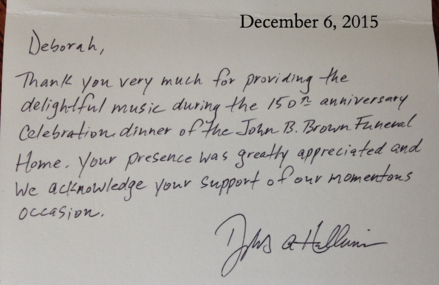 December 6, 2015
Deborah,
Thank you very much for providing the
delightful music during the 150th anniversary
Celebration dinner of the John B. Brown Funeral
Home. Your presence was greatly appreciated and
We acknowledge your support of our momentous
occasion.